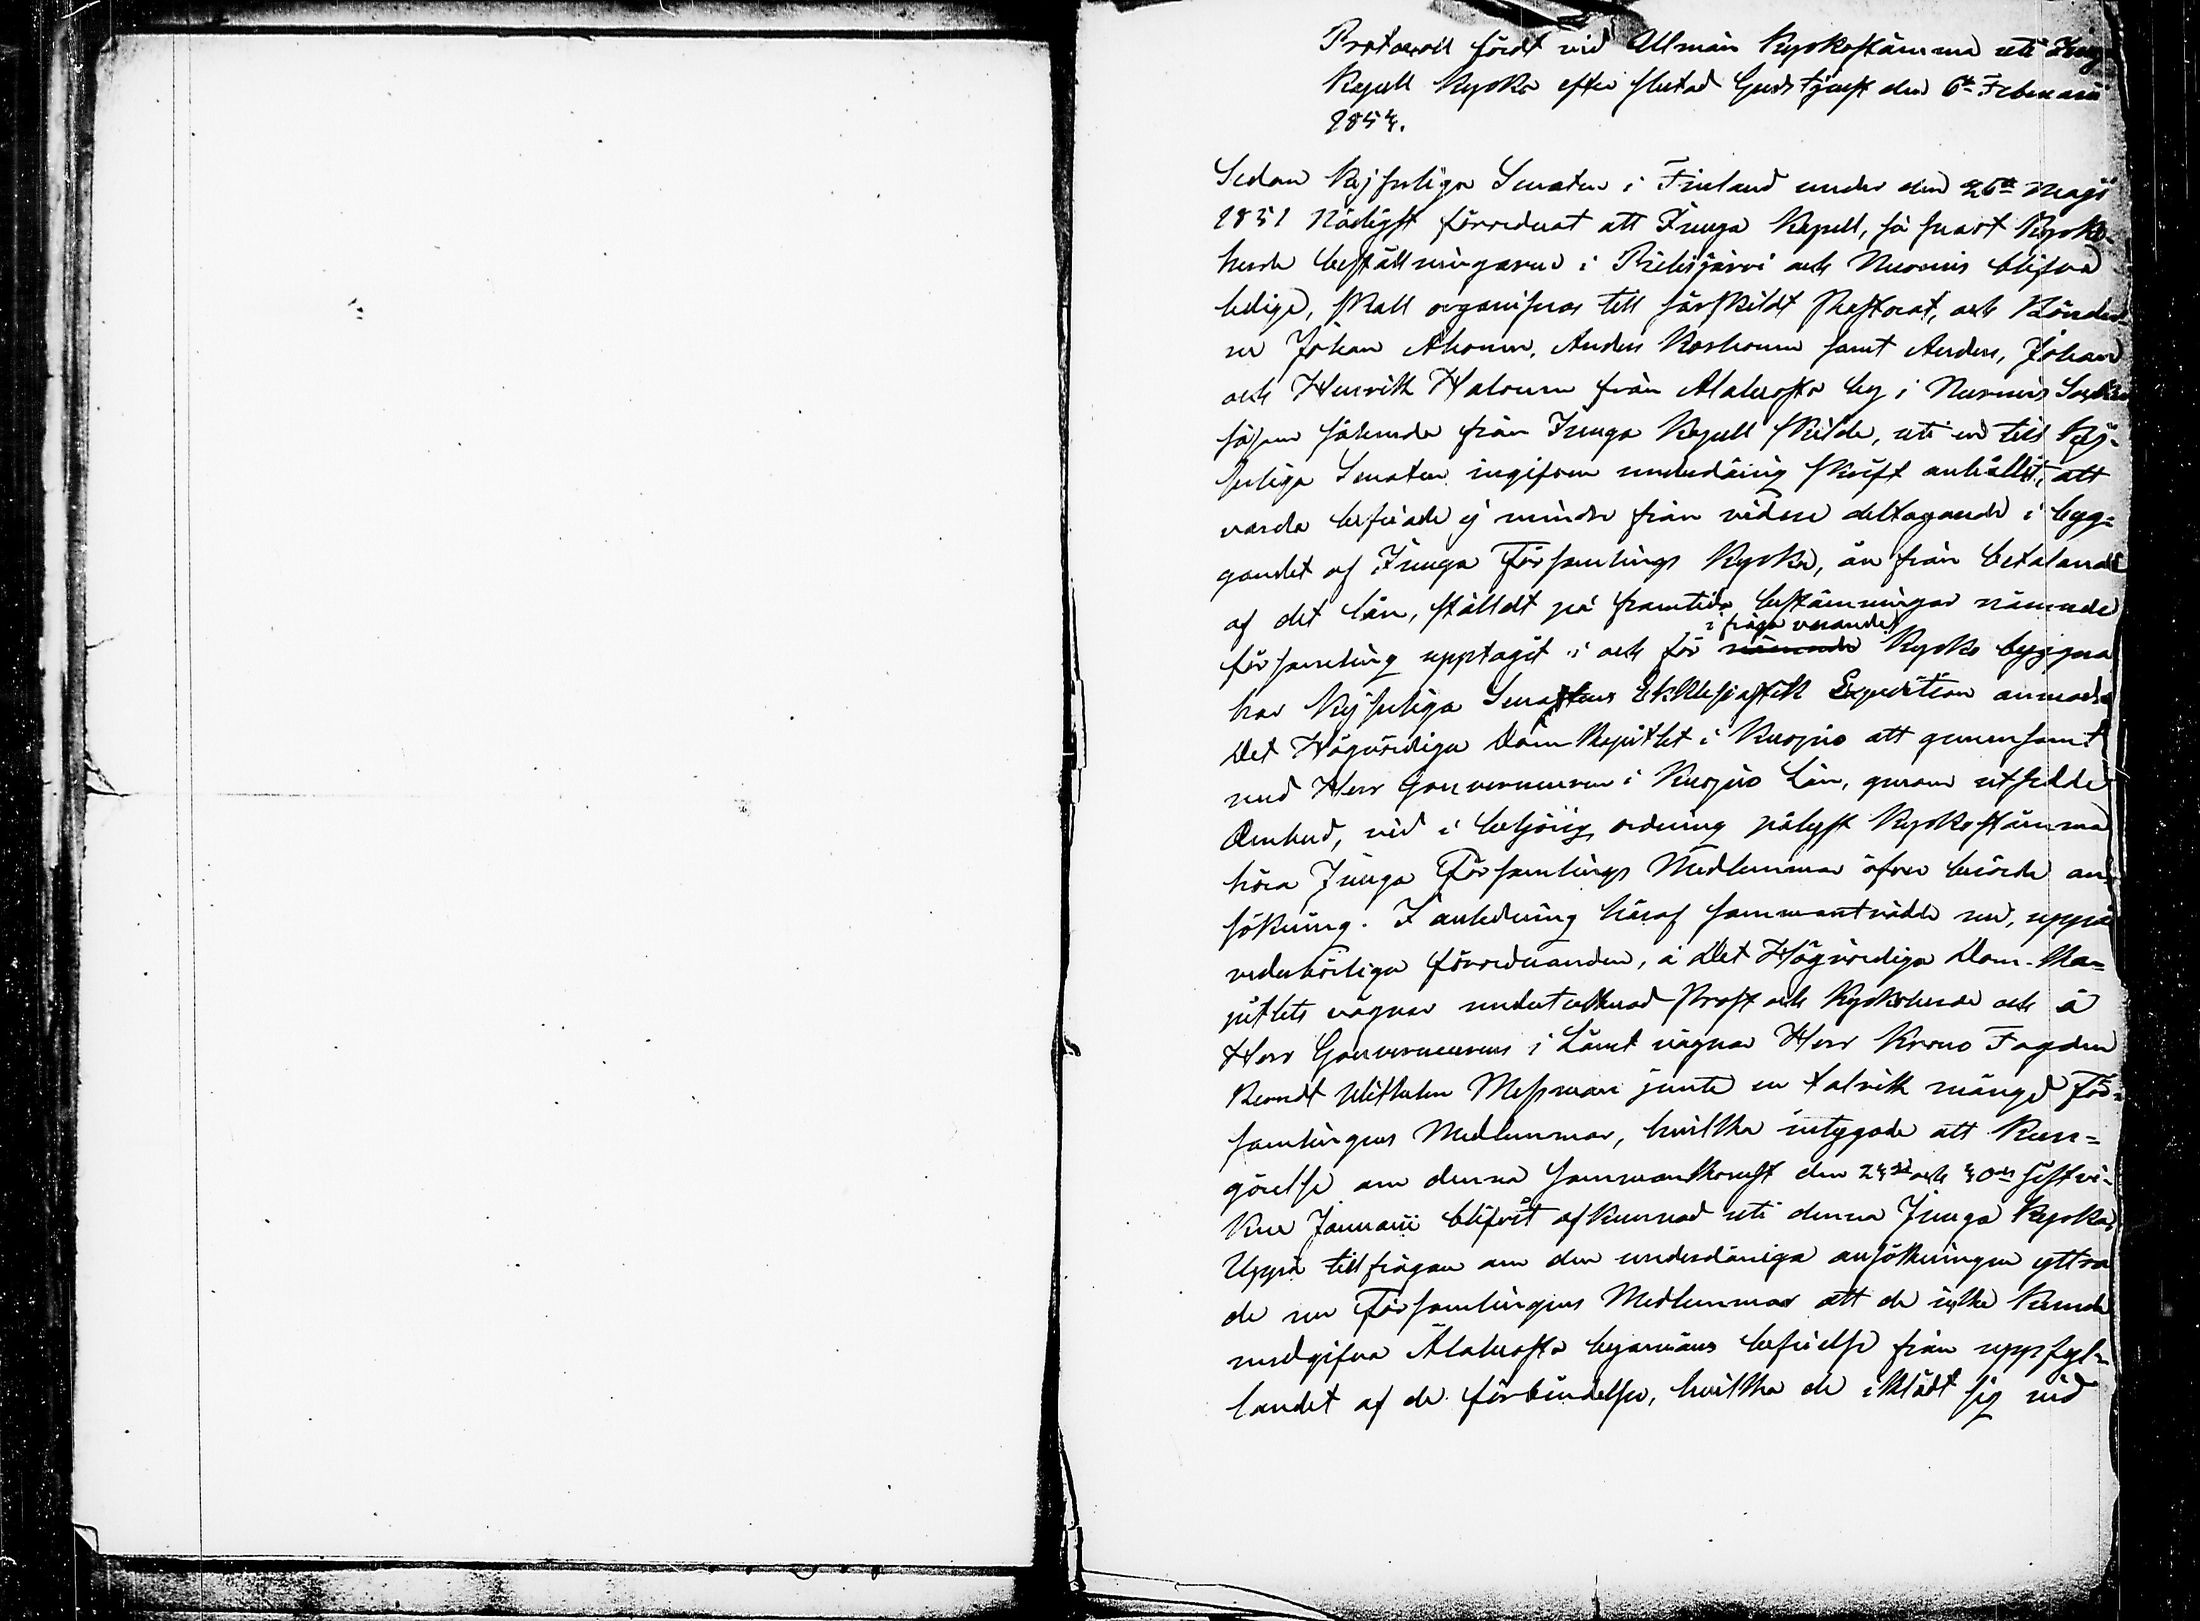 Protocoll fördt vid Allmän Kyrkostämma uti Juuga
Kapell Kyrka efter slutad Gudstjenst den 6te Februarii
1853.
Sedan Kejserliga Senaten i Finland under den 26te Maji
1851 Nådigst förordnat att Juuga Kapell, så snart Kyrko-
herde beställningarne i Pielisjärvi och Nurmis blifva
ledige, skall organiseras till särskildt Pastorat, och Bönder-
ne Johan Ahonen, Anders Korhonen samt Anders, Johan
och Henrik Halonen från Alaluosta by i Nurmis Socken
såsom sålunda från Juuga Kapell skilde, uti en till Kej-
serliga Senaten ingifven underdånig skrift anhållit, att
varda befriade ej mindre från vidare deltagande i byg-
gandet af Juuga Församlings Kyrka, än från betalande
af det lån, ställdt på framtida bestämningar nämnde
församling upptagit i och för nämnde i fråga varande Kyrko byggnad
har Kejserliga Senatens Ekklesiastik Expedition anmodat
Det Högvördiga Dom Kapitlet i Kuopio att gemensamt
med Herr Gouverneuren i Kuopio Län, genom utsedde
Ombud, vid i behörig ordning pålyst Kyrkostämma
höra Juuga Församlings Medlemmar öfver berörde an-
sökning. I anledning häraf sammanträdde nu, uppå
vederbörliga förordnanden, å Det Högvördiga Dom-Ka-
pitlets vägnar undertecknad Prost och Kyrkoherde och å
Herr Gouverneurens i Länet vägnar Herr Krono Fogden
Berndt Wilhelm Messman jemte en talrik mängd För-
samlingens Medlemmar, hvilka intygade att Kun-
görelse om denna sammankomst den 23de och 30de sistvi-
kne Januarii blifvit afkunnad uti denna Juuga Kyrka.
Uppå tillfrågan om den underdåniga ansökningen yttra
de nu Församlingens Medlemmar att de icke kunde
medgifva Alaluosta byamäns befrielse från uppfyl-
landet af de förbindelser, hvilka de iklädt sig vid